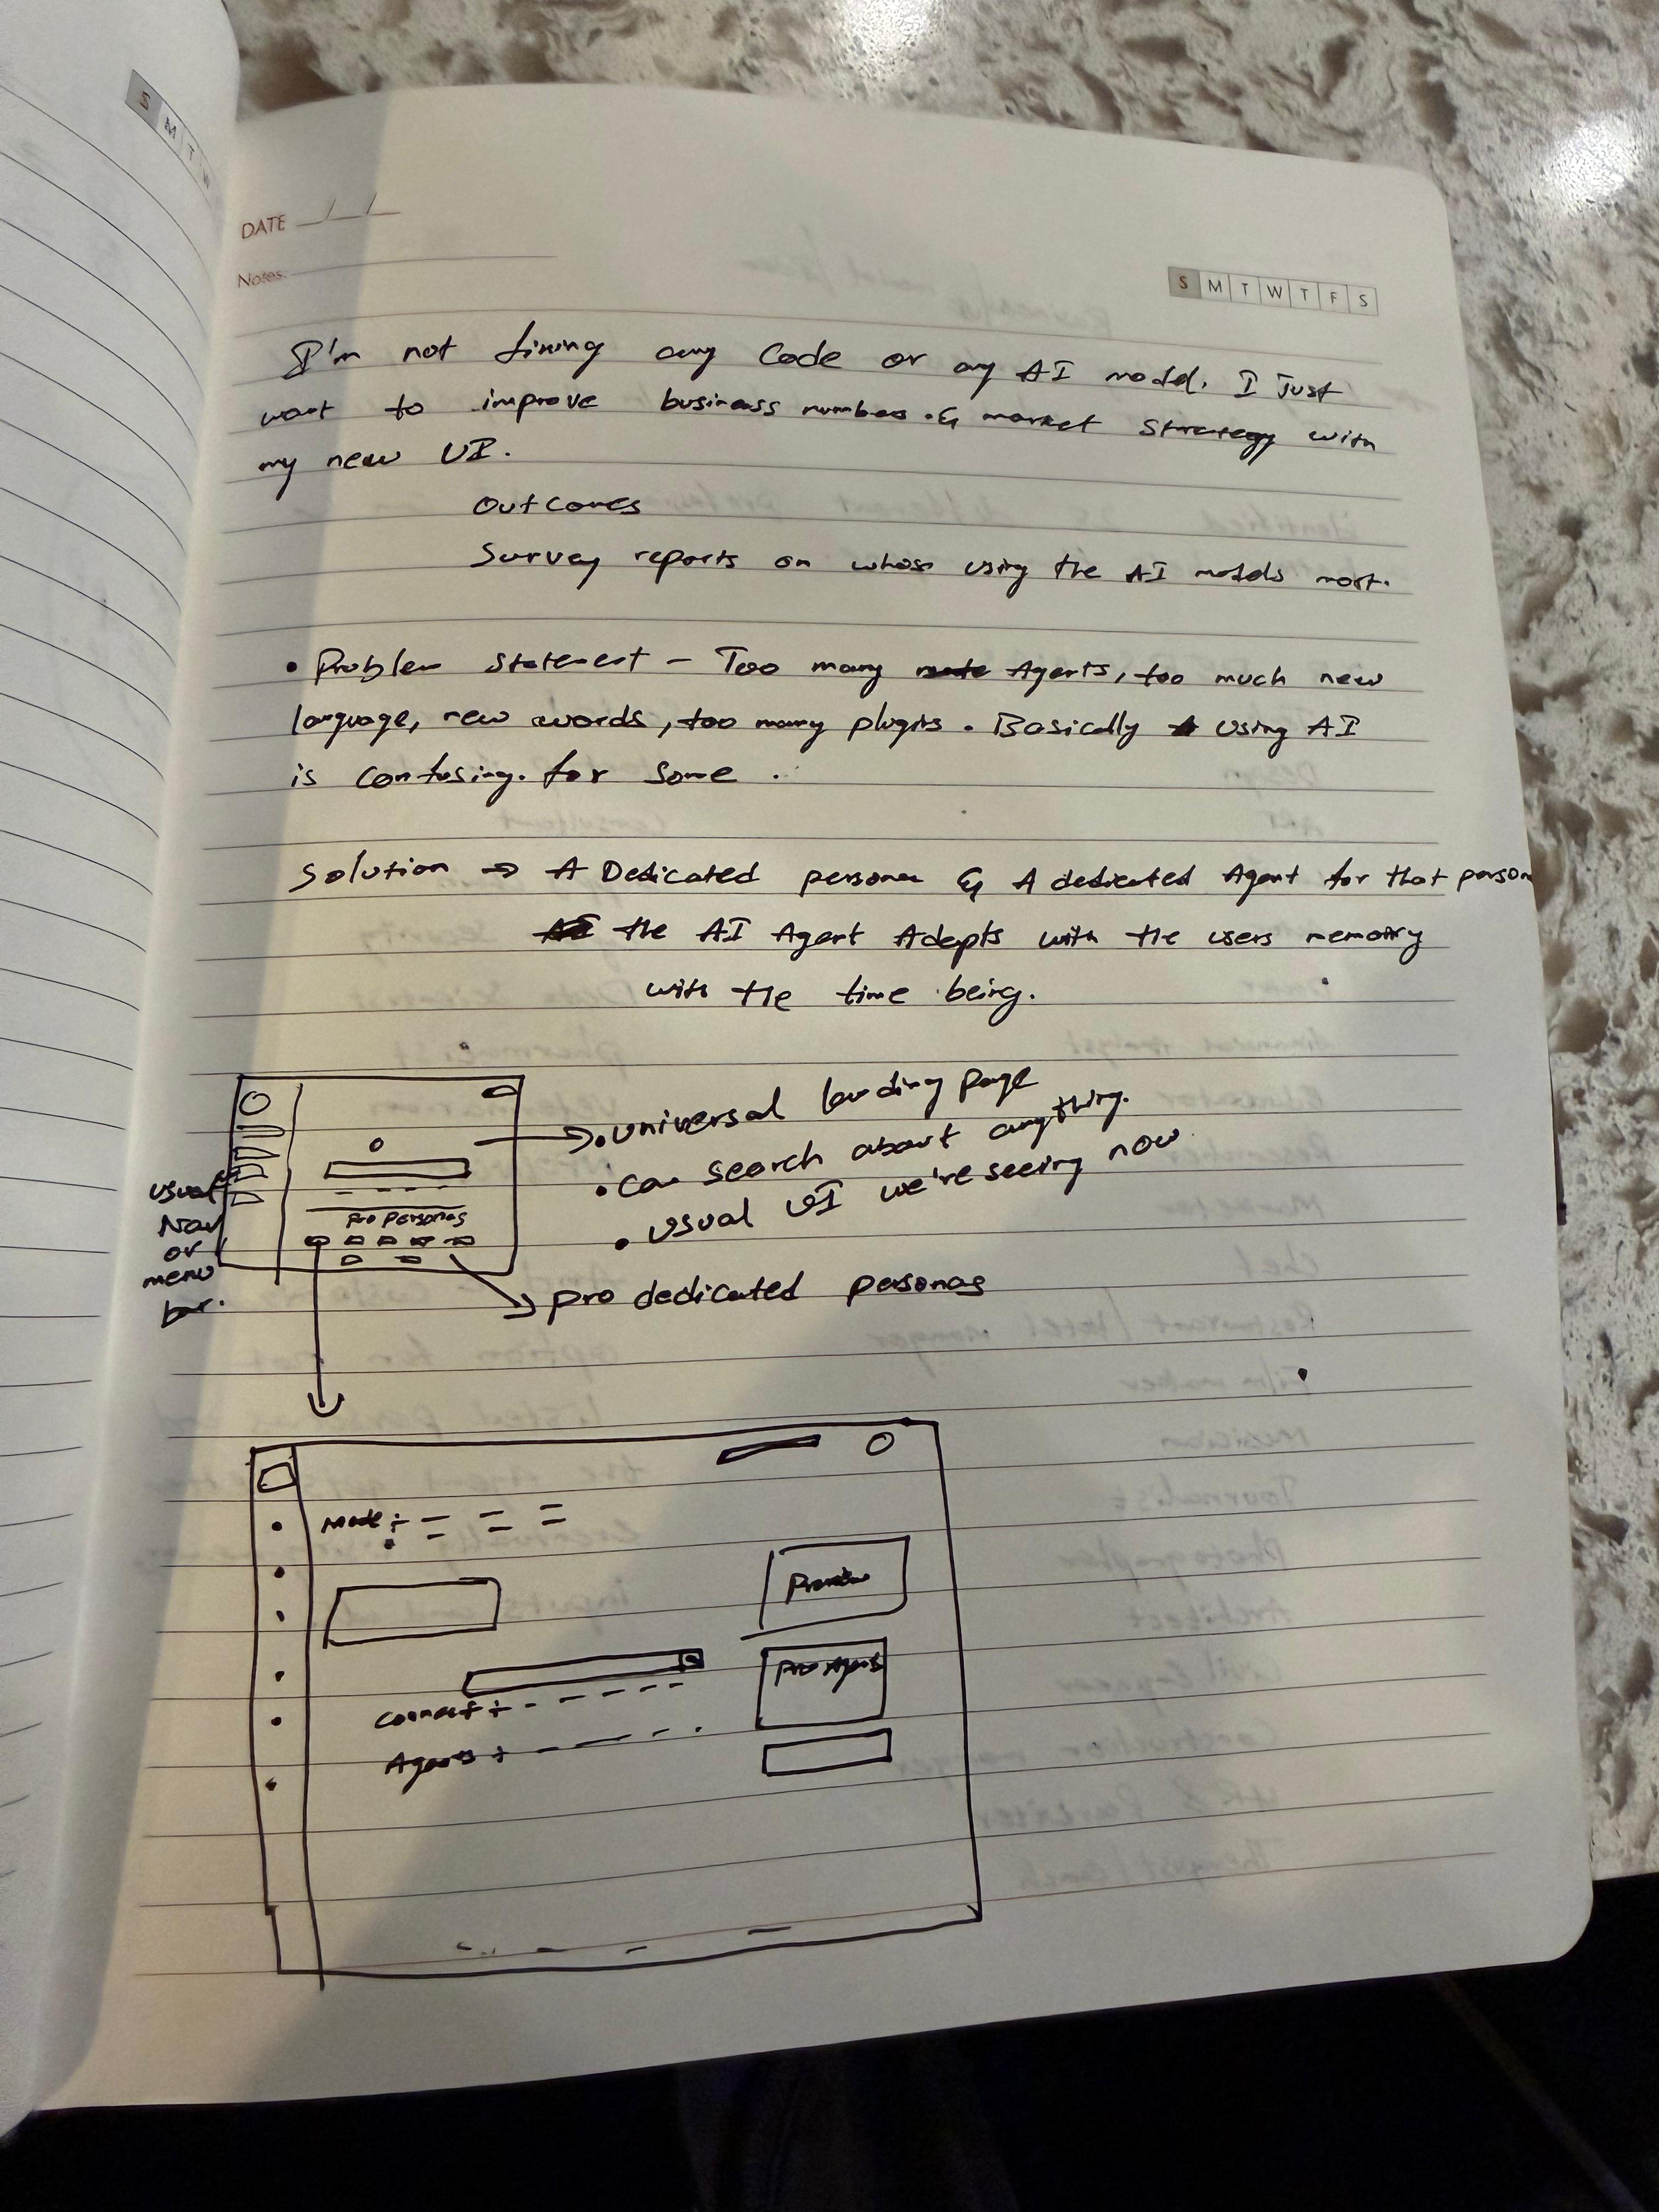 S M T W
DATE
Notes:
S M T W T F S
I'm not fixing any Code or any AI model. I Just
want to improve business numbers. & market Strategy with
my new UI.
Outcomes
Survey reports on whose using the AI models most.
• Problem statement - Too many Agents, too much new
language, new words, too many plugins. Basically using AI
is confusing. for some.
Solution → A Dedicated persona & A dedicated Agent for that person
the AI Agent Adepts with the users memory
with the time being.
• universal landing page
• Can search about anything.
• usual UI we're seeing now
usual
Nav
or
menu
bar.
pro personas
pro dedicated personas
Mode :
Preview
Pro Agents
Connect +
Agents +